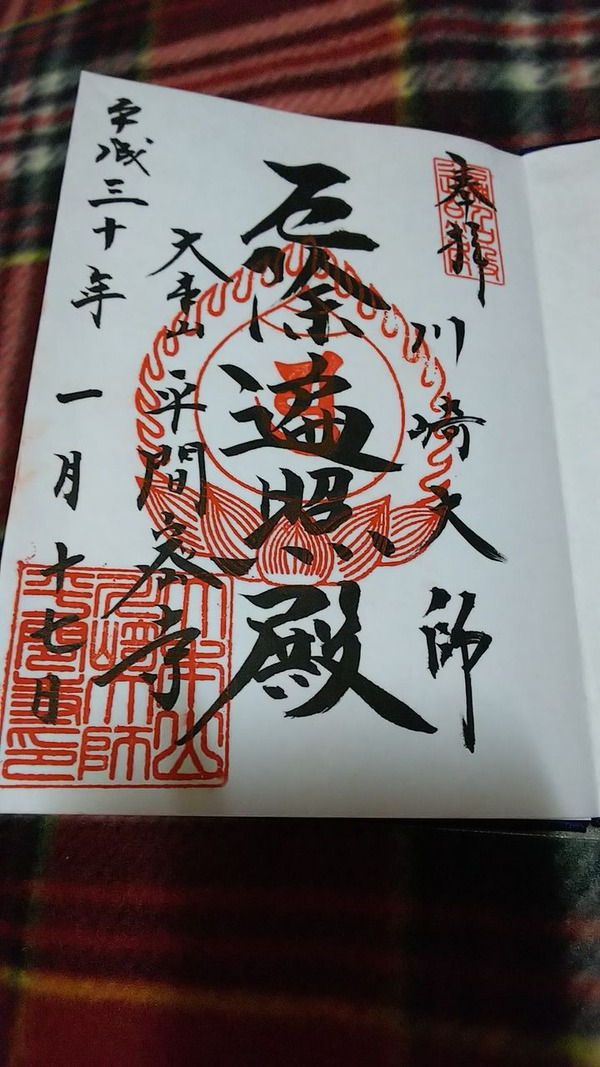 奉拝
川崎大師
厄除遍照殿
大本山平間寺
平成三十年一月十七日